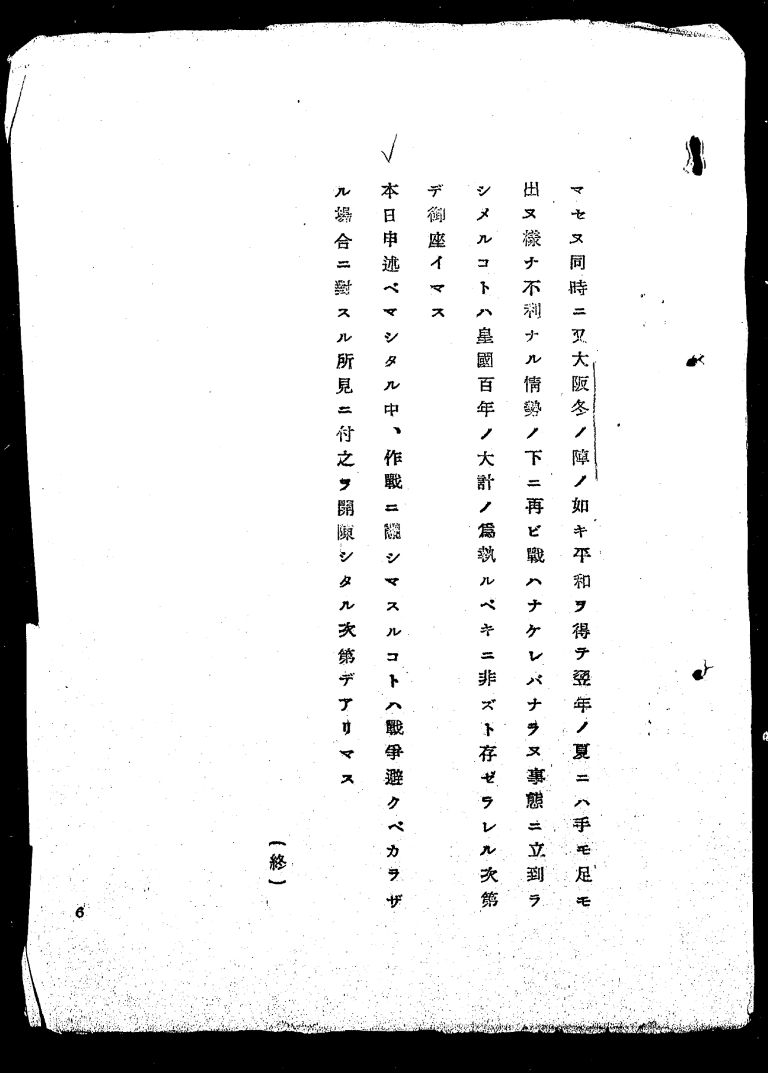 マセヌ同時ニ又大阪冬ノ陣ノ如キ平和ヲ得テ翌年ノ夏ニハ手モ足モ
出ヌ樣ナ不利ナル情勢ノ下ニ再ビ戰ハナケレバナラヌ事態ニ立到ラ
シメルコトハ皇國百年ノ大計ノ爲執ルベキニ非ズト存ゼラレル次第
デ御座イマス
本日申述ベマシタル中、作戰ニ關シマスルコトハ戰爭避クベカラザ
ル場合ニ對スル所見ニ付之ヲ開陳シタル次第デアリマス
(終)
6